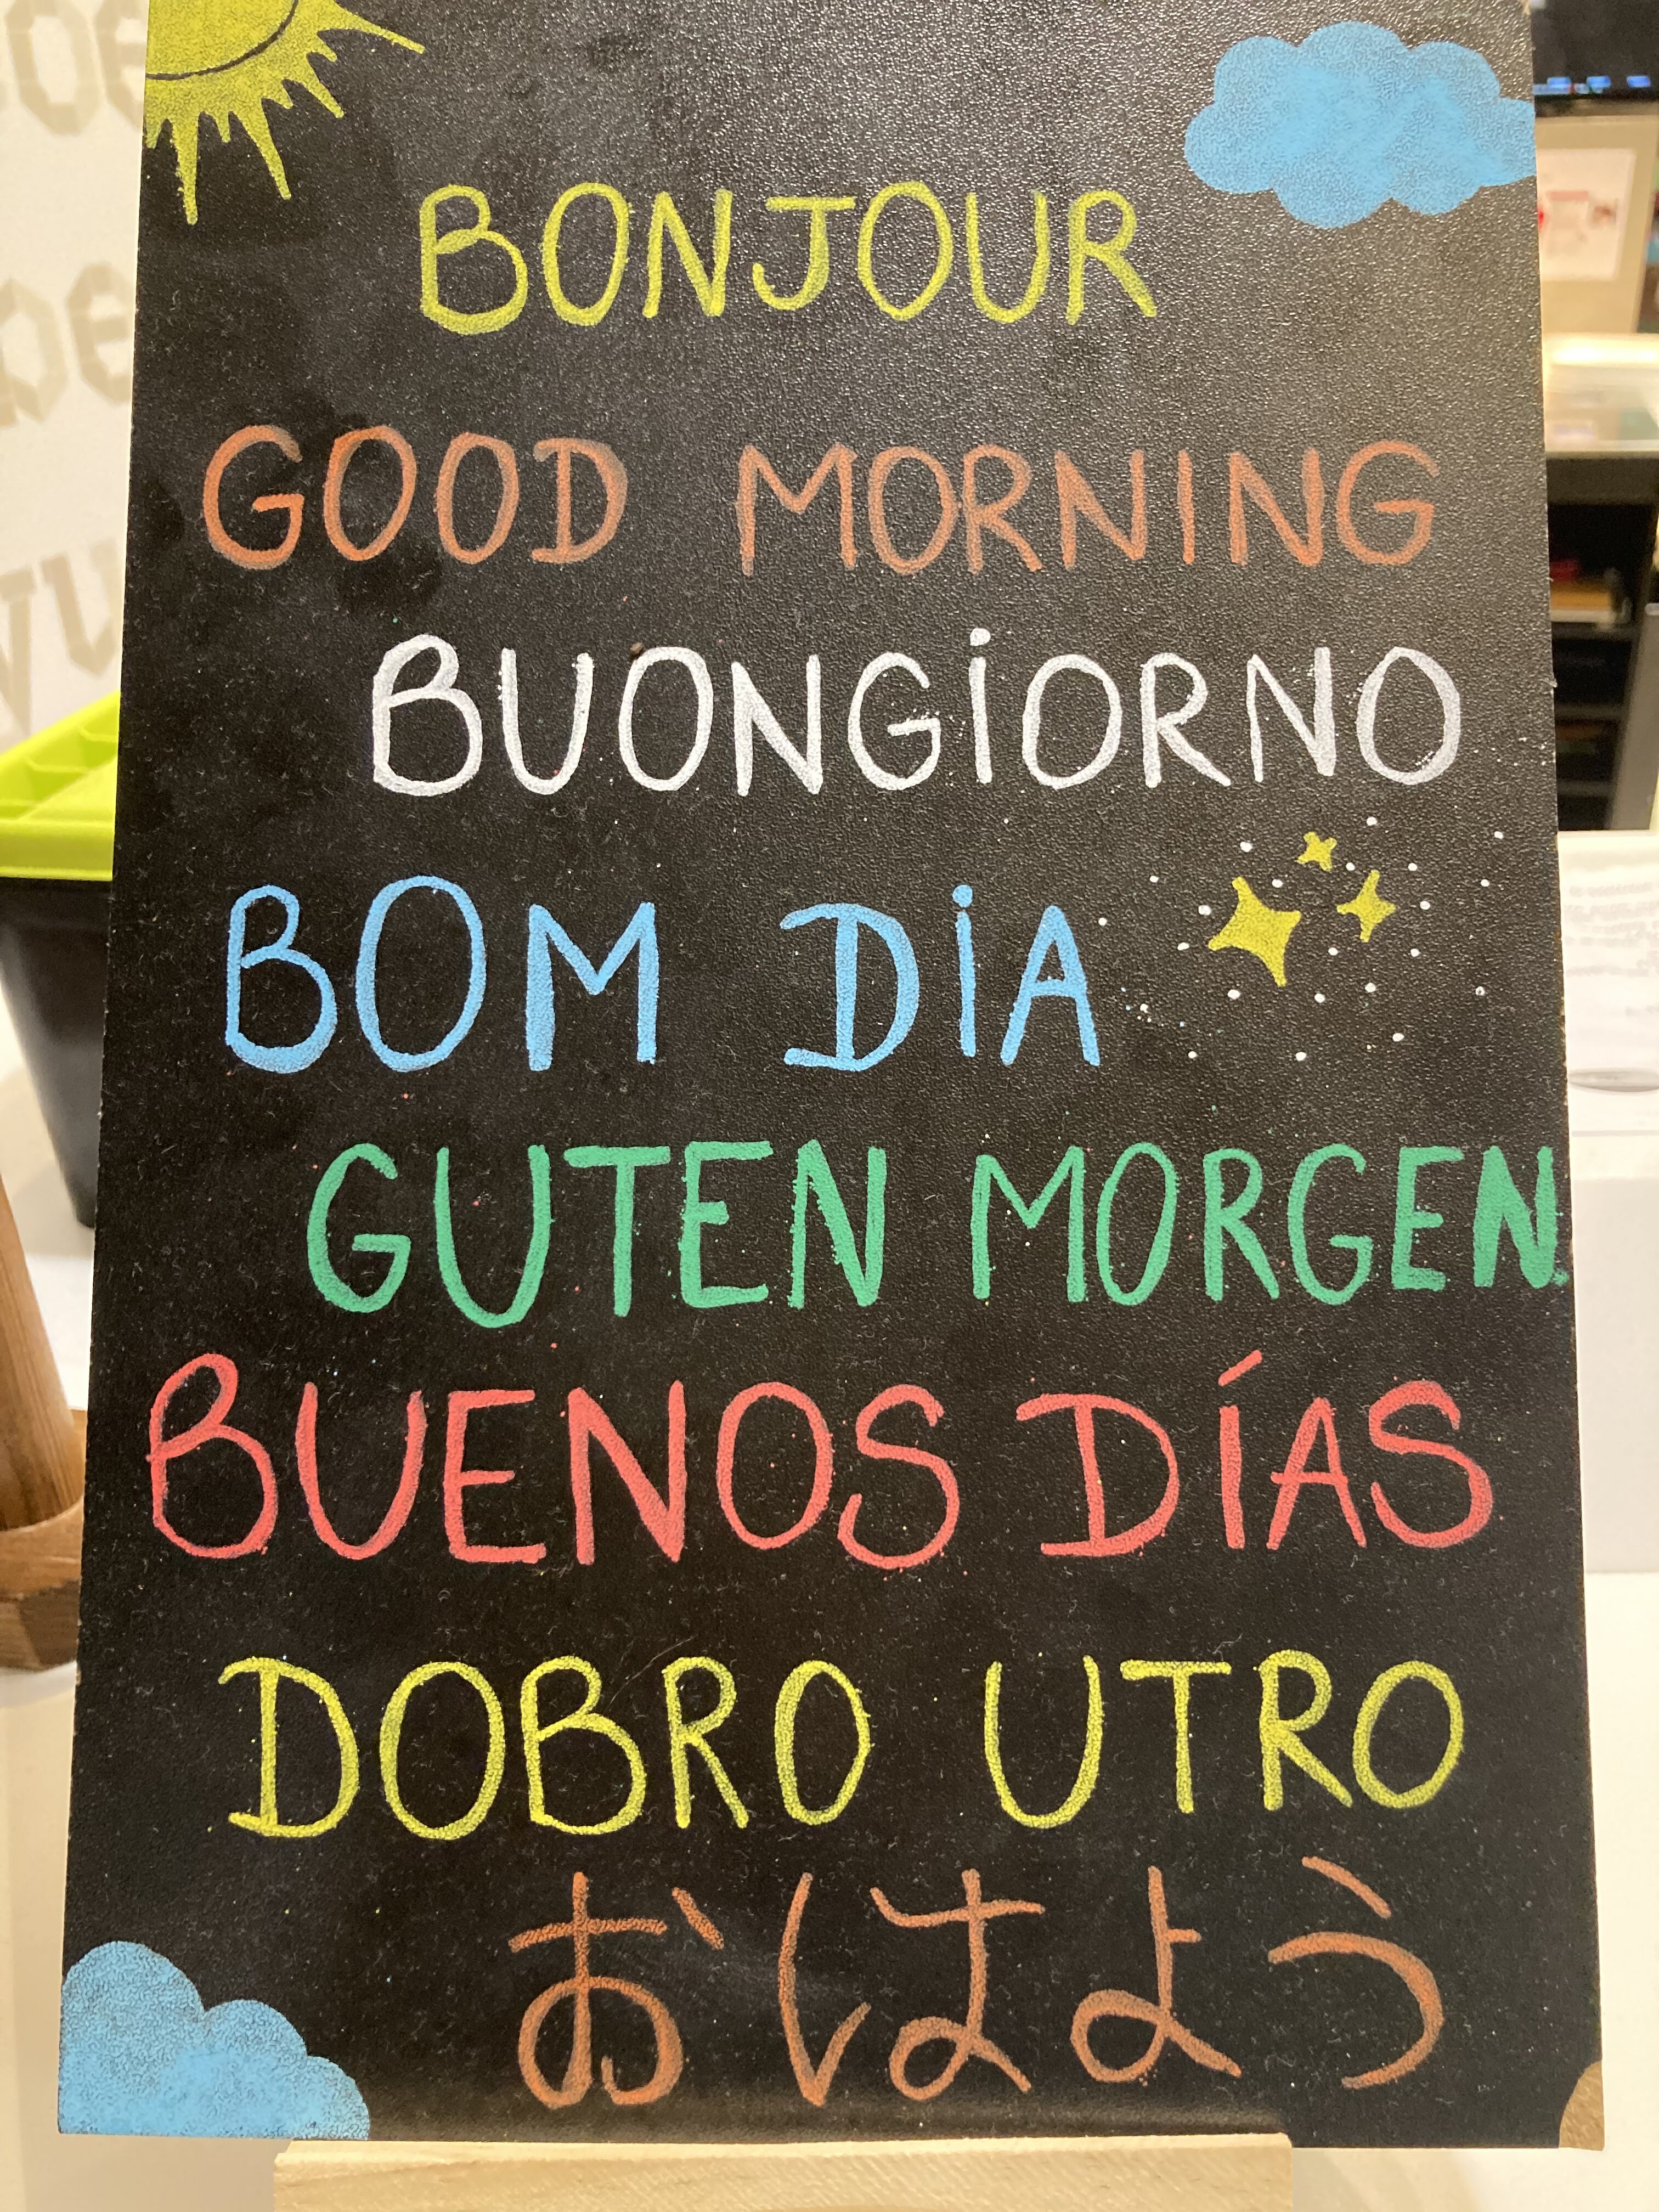 BONJOUR
GOOD MORNING
BUONGIORNO
BOM DIA
GUTEN MORGEN
BUENOS DÍAS
DOBRO UTRO
おはよう